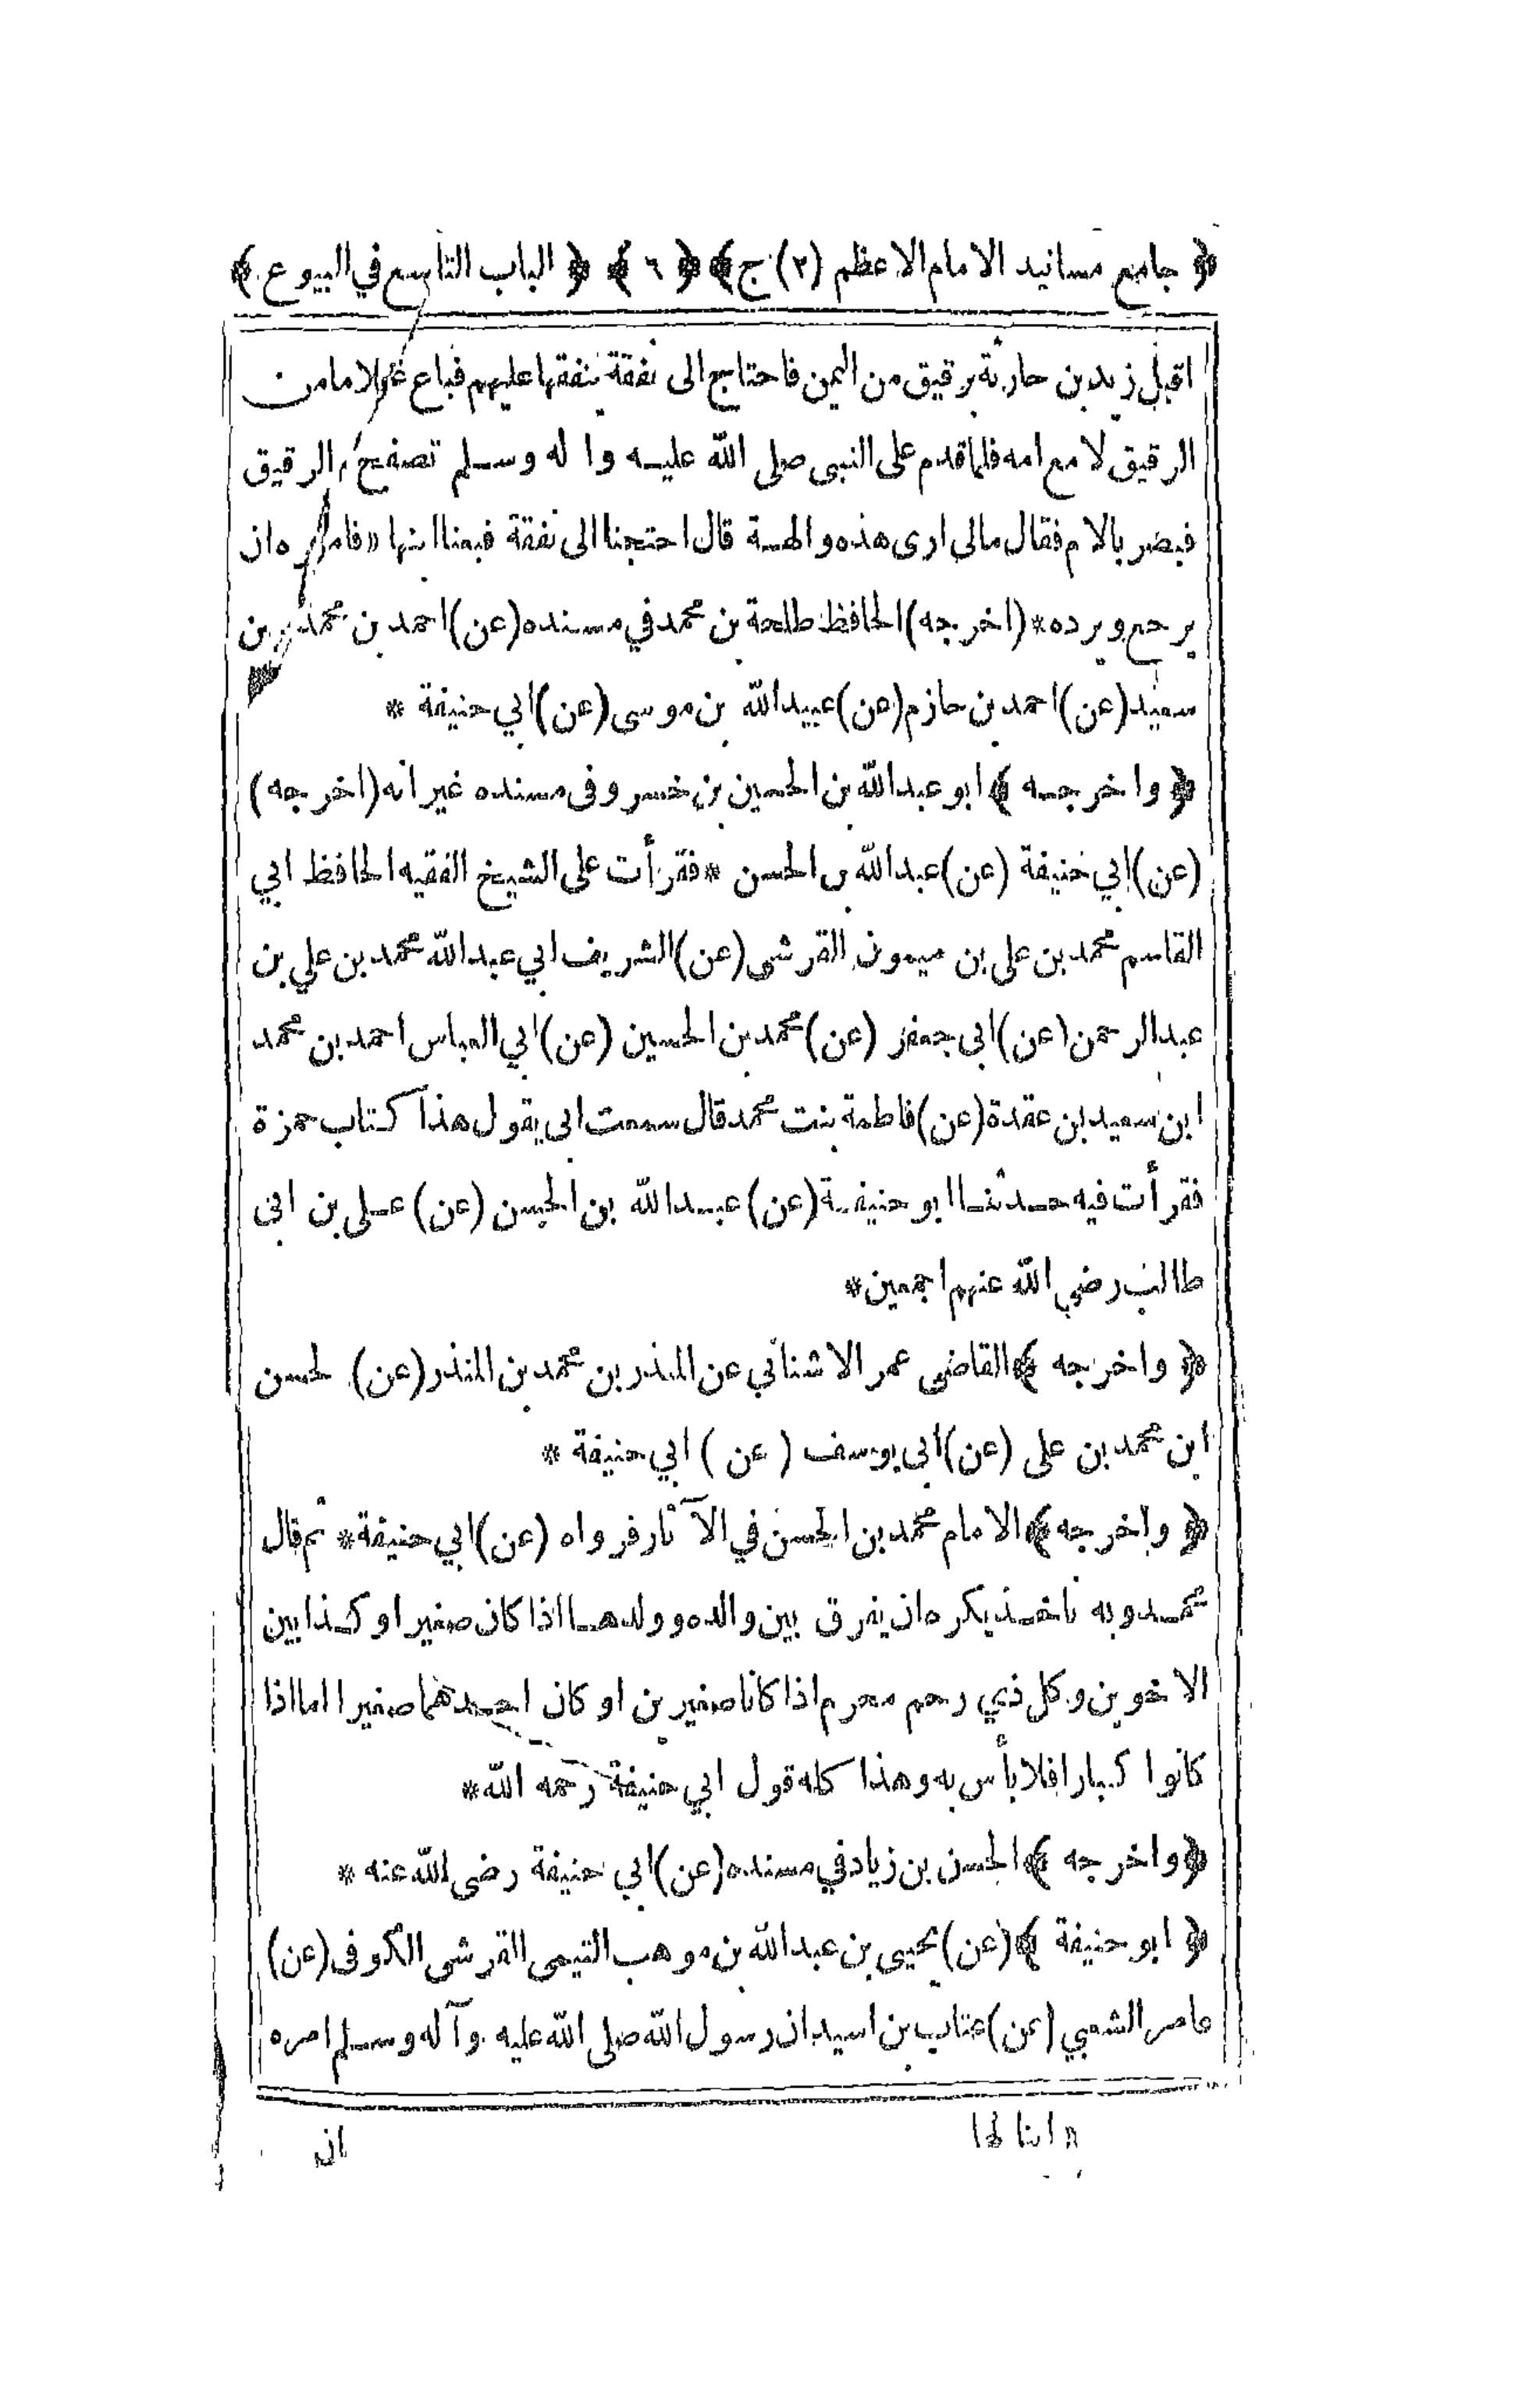 ﴿ جامع مسانيد الامام الاعظم (٢) ج﴾ ﴿ ٦ ﴾ ﴿ الباب التاسع في البيوع ﴾
اقبل زيد بن حارثة برقيق من اليمن فاحتاج الى نفقة ينفقها عليهم فباع غلاما من
الرقيق لا مع امه فلما قدم على النبي صلى الله عليه واله وسلم تصفح الرقيق
فبصر بالام فقال مالى ارى هذه والهة قال احتجنا الى نفقة فبعنا ابنها «فامره ان
يرجع ويرده* (اخرجه) الحافظ طلحة بن محمد في مسنده (عن) احمد بن محمد بن
سعيد (عن) احمد بن حازم (عن) عبيد الله بن موسى (عن) ابي حنيفة *
﴿ واخرجه ﴾ ابو عبد الله بن الحسين بن خسرو فى مسنده غير انه (اخرجه)
(عن) ابي حنيفة (عن) عبد الله بن الحسن * فقرأت على الشيخ الفقيه الحافظ ابي
القاسم محمد بن على بن ميمون القرشى (عن) الشريف ابي عبد الله محمد بن علي بن
عبد الرحمن (عن) ابى جعفر (عن) محمد بن الحسين (عن) ابي العباس احمد بن محمد
ابن سعيد بن عقدة (عن) فاطمة بنت محمد قال سمعت ابى يقول هذا كتاب حمزة
فقرأت فيه حدثنا ابو حنيفة (عن) عبد الله بن الحسن (عن) على بن ابى
طالب رضي الله عنهم اجمعين*
﴿ واخرجه ﴾ القاضى عمر الاشنانى عن المنذر بن محمد بن المنذر (عن) لحسن
ابن محمد بن على (عن) ابى يوسف (عن) ابي حنيفة *
﴿ واخرجه ﴾ الامام محمد بن الحسن في الآثار فرواه (عن) ابي حنيفة* ثم قال
محمد وبه ناخذ يكره ان يفرق بين والده وولدها اذا كان صغيرا وكذا بين
الاخوين وكل ذي رحم محرم اذا كانا صغيرين او كان احدهما صغيرا اما اذا
كانوا كبارا فلا بأس به وهذا كله قول ابي حنيفة رحمه الله*
﴿واخرجه ﴾ الحسن بن زياد في مسنده (عن) ابي حنيفة رضى الله عنه *
﴿ ابو حنيفة ﴾ (عن) يحيى بن عبد الله بن موهب التيمى القرشى الكوفى (عن)
عامر الشعبي (عن) عتاب بن اسيد ان رسول الله صلى الله عليه وآله وسلم امره
« ابنا لها
ان